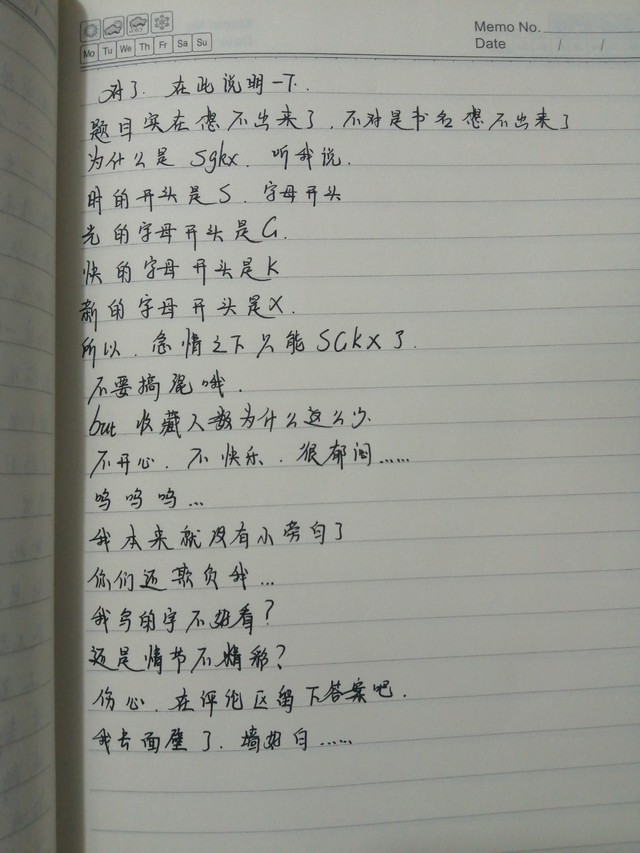 Memo No.
Mo Tu We Th Fr Sa Su
Date / /
对了. 在此说明一下.
题目实在想不出来了,不对是书名想不出来了
为什么是 Sgkx. 听我说.
时的开头是S. 字母开头
光的字母开头是G.
快的字母开头是K
新的字母开头是X.
所以. 急情之下只能SGKX了.
不要搞混哦.
but 收藏人数为什么这么少.
不开心. 不快乐. 很郁闷……
呜呜呜…
我本来就没有小旁白了
你们还欺负我…
我写的字不好看?
还是情节不精彩?
伤心. 在评论区留下答案吧.
我去面壁了. 墙好白……